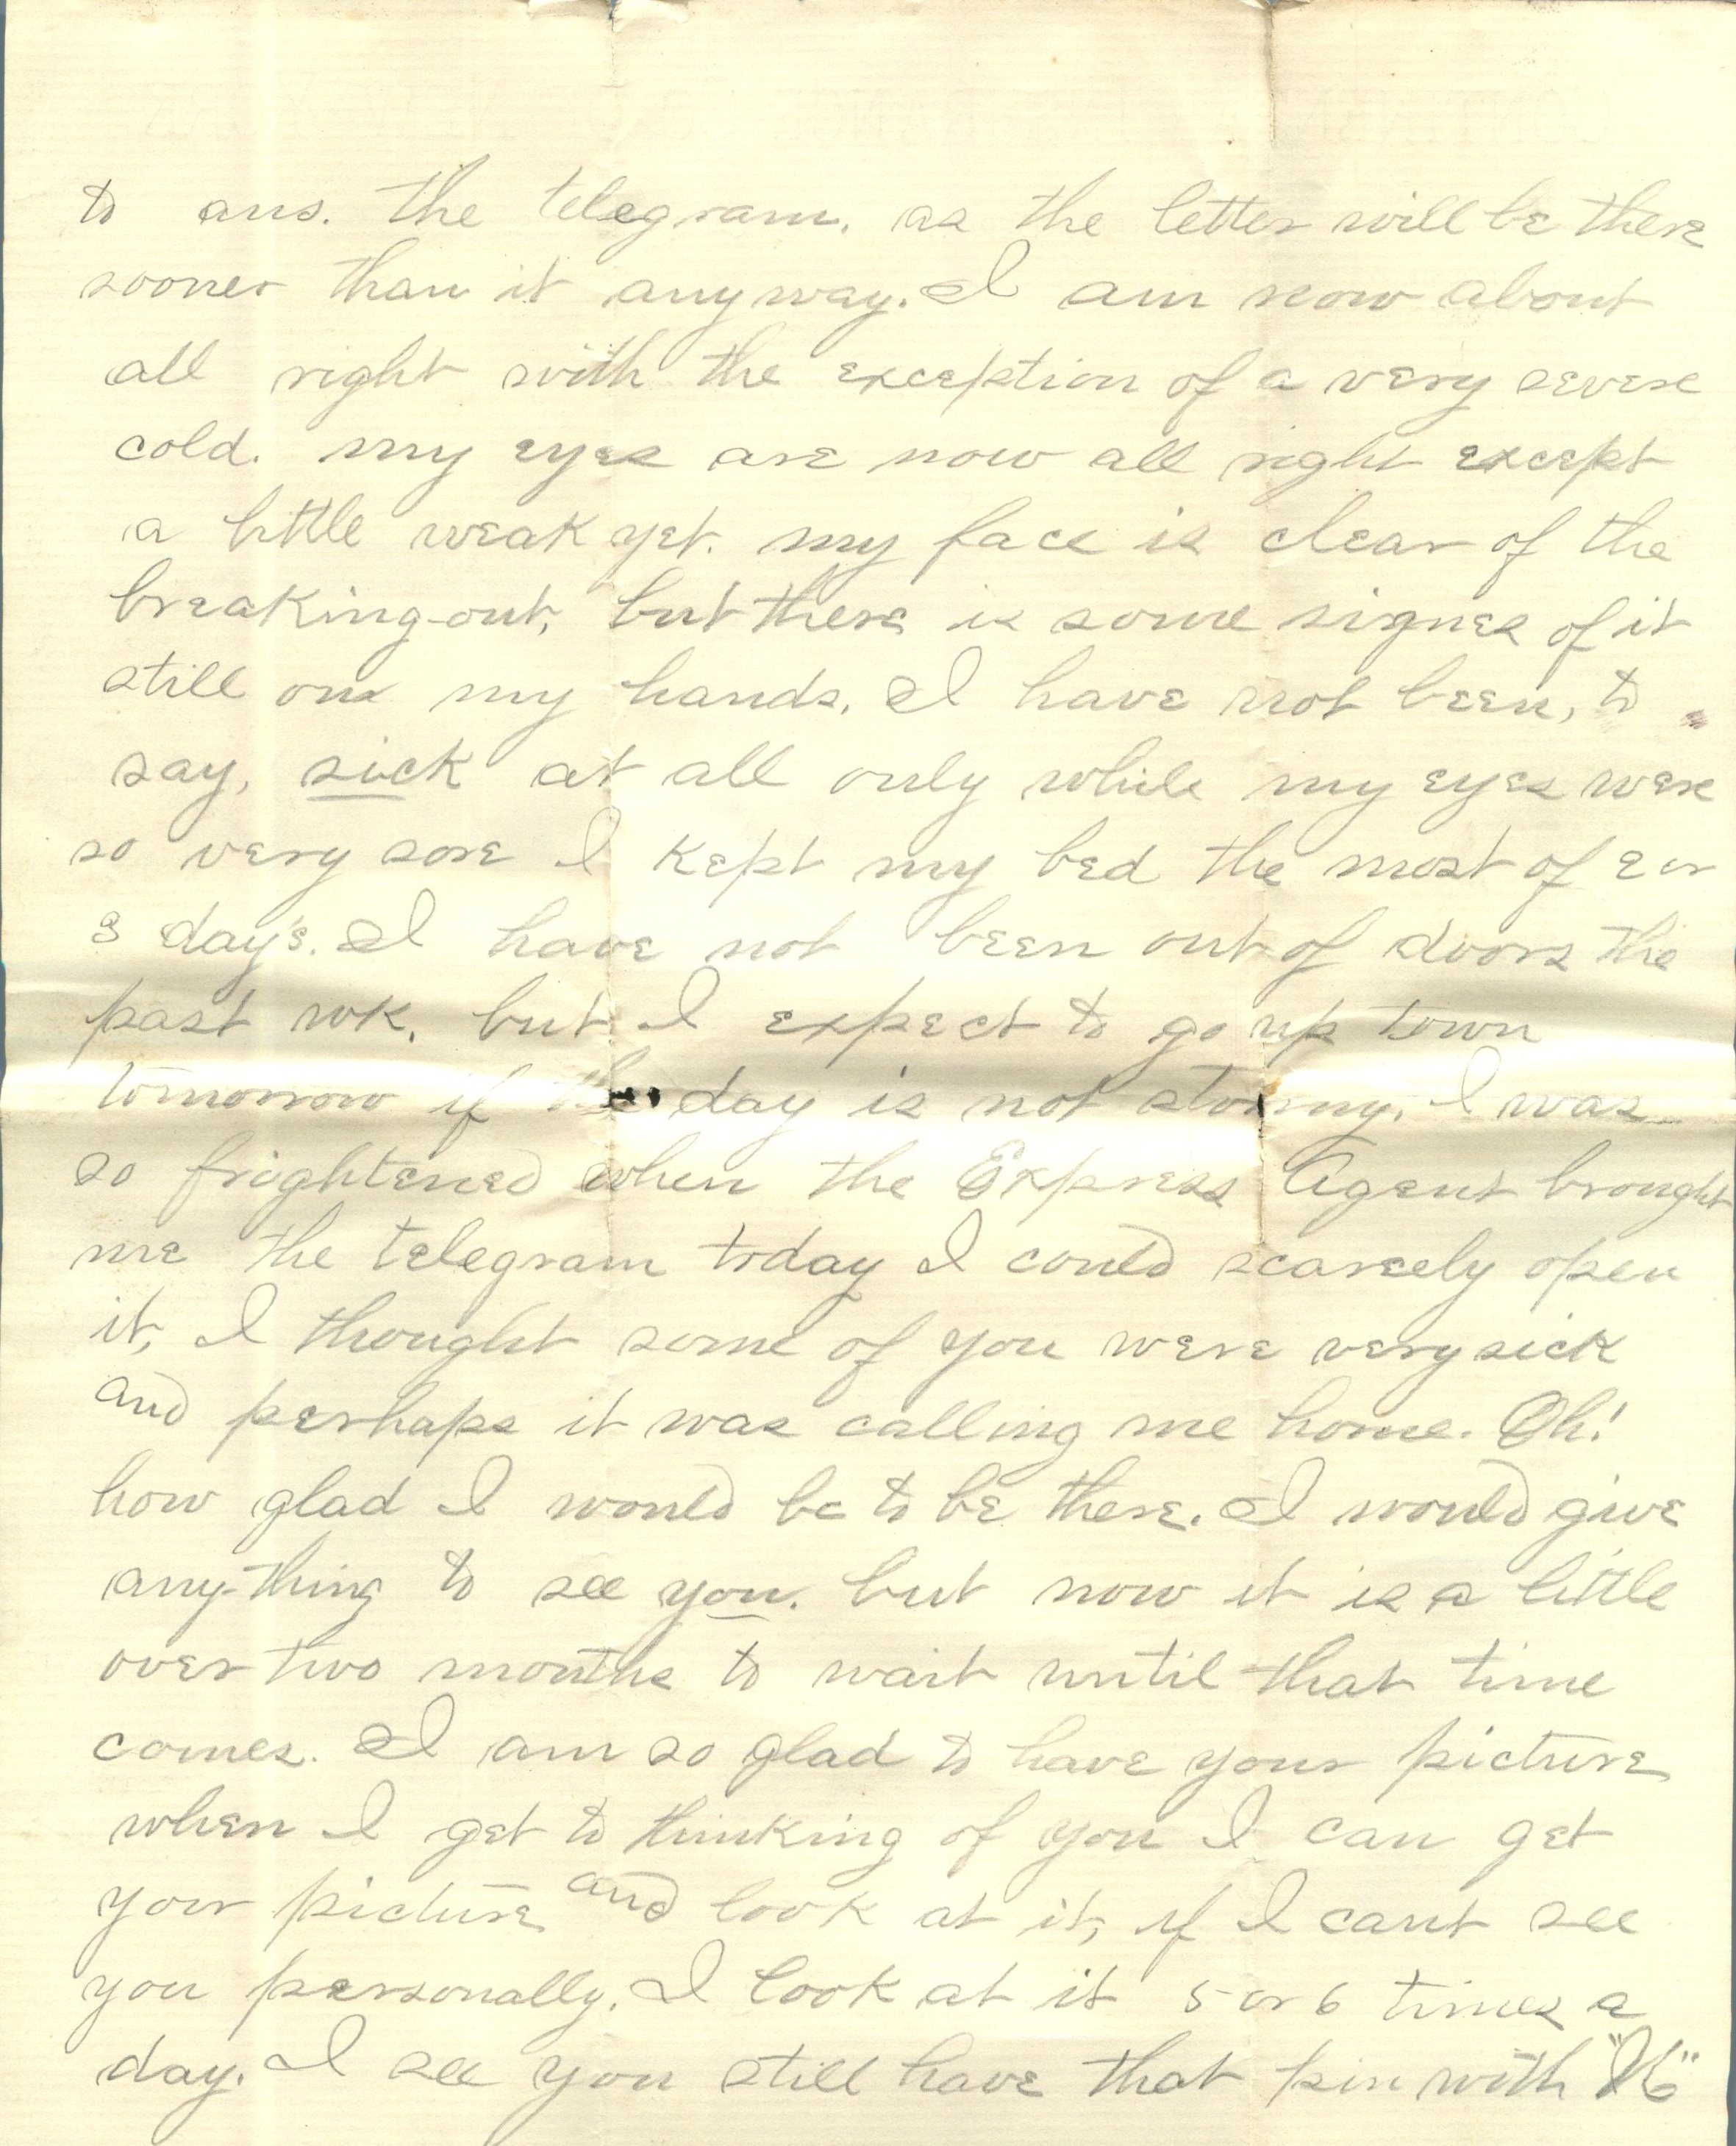 to ans. the telegram. as the letter will be there
sooner than it anyway. I am now about
all right with the exception of a very severe
cold. my eyes are now all right except
a little weak yet. my face is clear of the
breaking-out, but there is some signes of it
still on my hands. I have not been, to
say, sick at all only while my eyes were
so very sore I kept my bed the most of 2 or
3 day's. I have not been out of doors the
past wk. but I expect to go up town
tomorrow if the day is not stormy. I was
so frightened when the Express Agent brought
me the telegram today I could scarcely open
it, I thought some of you were very sick
and perhaps it was calling me home. Oh!
how glad I would be to be there. I would give
any-thing to see you. but now it is a little
over two months to wait until that time
comes. I am so glad to have your picture
when I get to thinking of you I can get
your picture and look at it, if I cant see
you personally. I look at it 5 or 6 times a
day. I see you still have that pin with